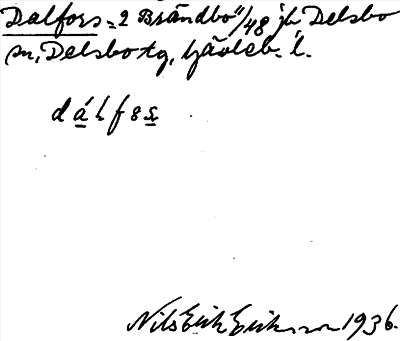 Dalfors = 2 Brändbo 11/48 jb Delsbo
sn, Delsbo tg, Gävleb. l.
dálfes
Nils Erik Eriksson 1936.